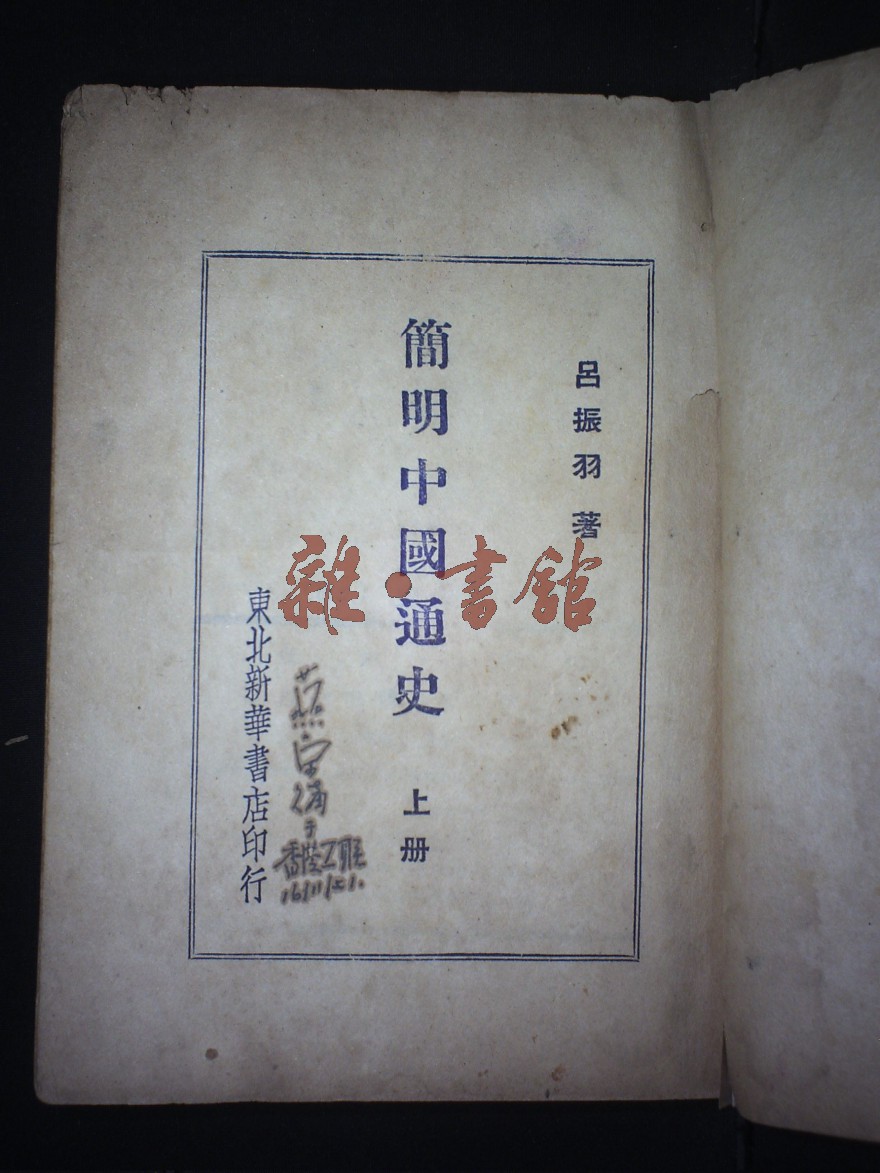 呂振羽著
簡明中國通史 上册
東北新華書店印行
雜·書館
16/11/51.